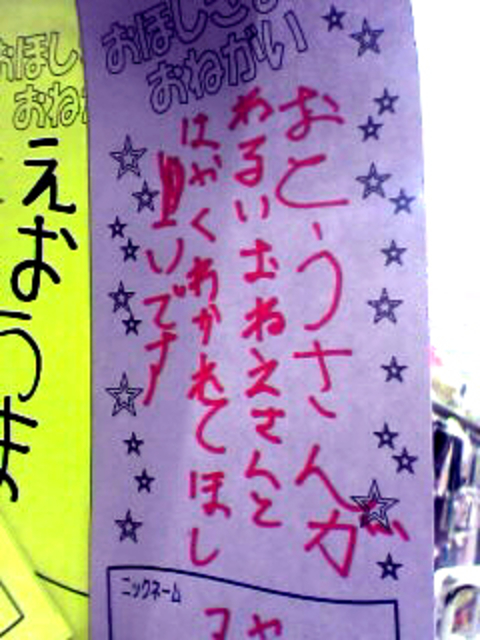 おほしさま
おねがい
おとうさんが
わるいおねえさんと
はやくわかれてほし
いです
ニックネーム
マヤ
おほし
おね
えお